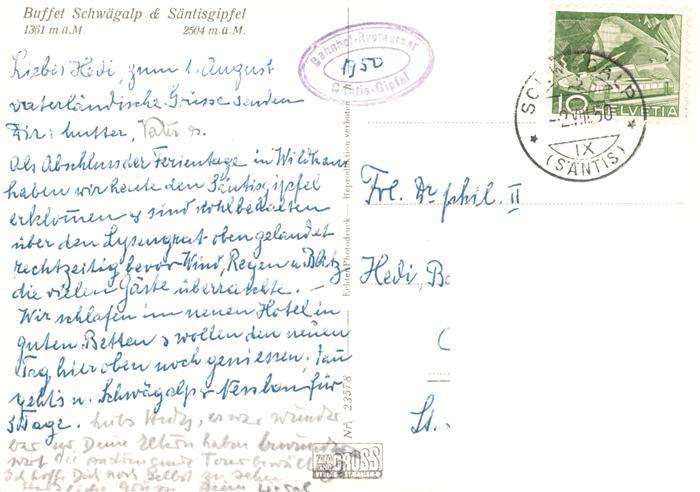 Buffet Schwägalp & Säntisgipfel
1361 m.ü.M 2504 m.ü.M.
Liebes Hedi, zum 1. August
vaterländische Grüsse senden
Dir: Mutter, Vater
Als Abschluss der Ferientage in Wildhaus
haben wir heute den Säntisgipfel
erklommen & sind wohlbehalten
über den Lysengrat oben gelandet
rechtzeitig bevor Wind, Regen u. Blitz
die vielen Gäste überraschte. –
Wir schlafen im neuen Hotel in
guten Betten & wollen den neuen
Tag hier oben noch geniessen, dann
geht's n. Schwägalp & Nesslau für
3 Tage.
liebs Hedy, es war wunder
bar u. Deine Eltern haben
wert die Tour
Ich hoffe Dich noch selbst zu sehen
Bahnhof-Restaurant
1950
Säntis-Gipfel
Echte Photodruck — Reproduktion verboten
NA 23578
GROSS
10
HELVETIA
SCHWÄGALP
-2.VIII.50
IX
(SÄNTIS)
Frl. Dr phil. II
Hedi, Ba
St.